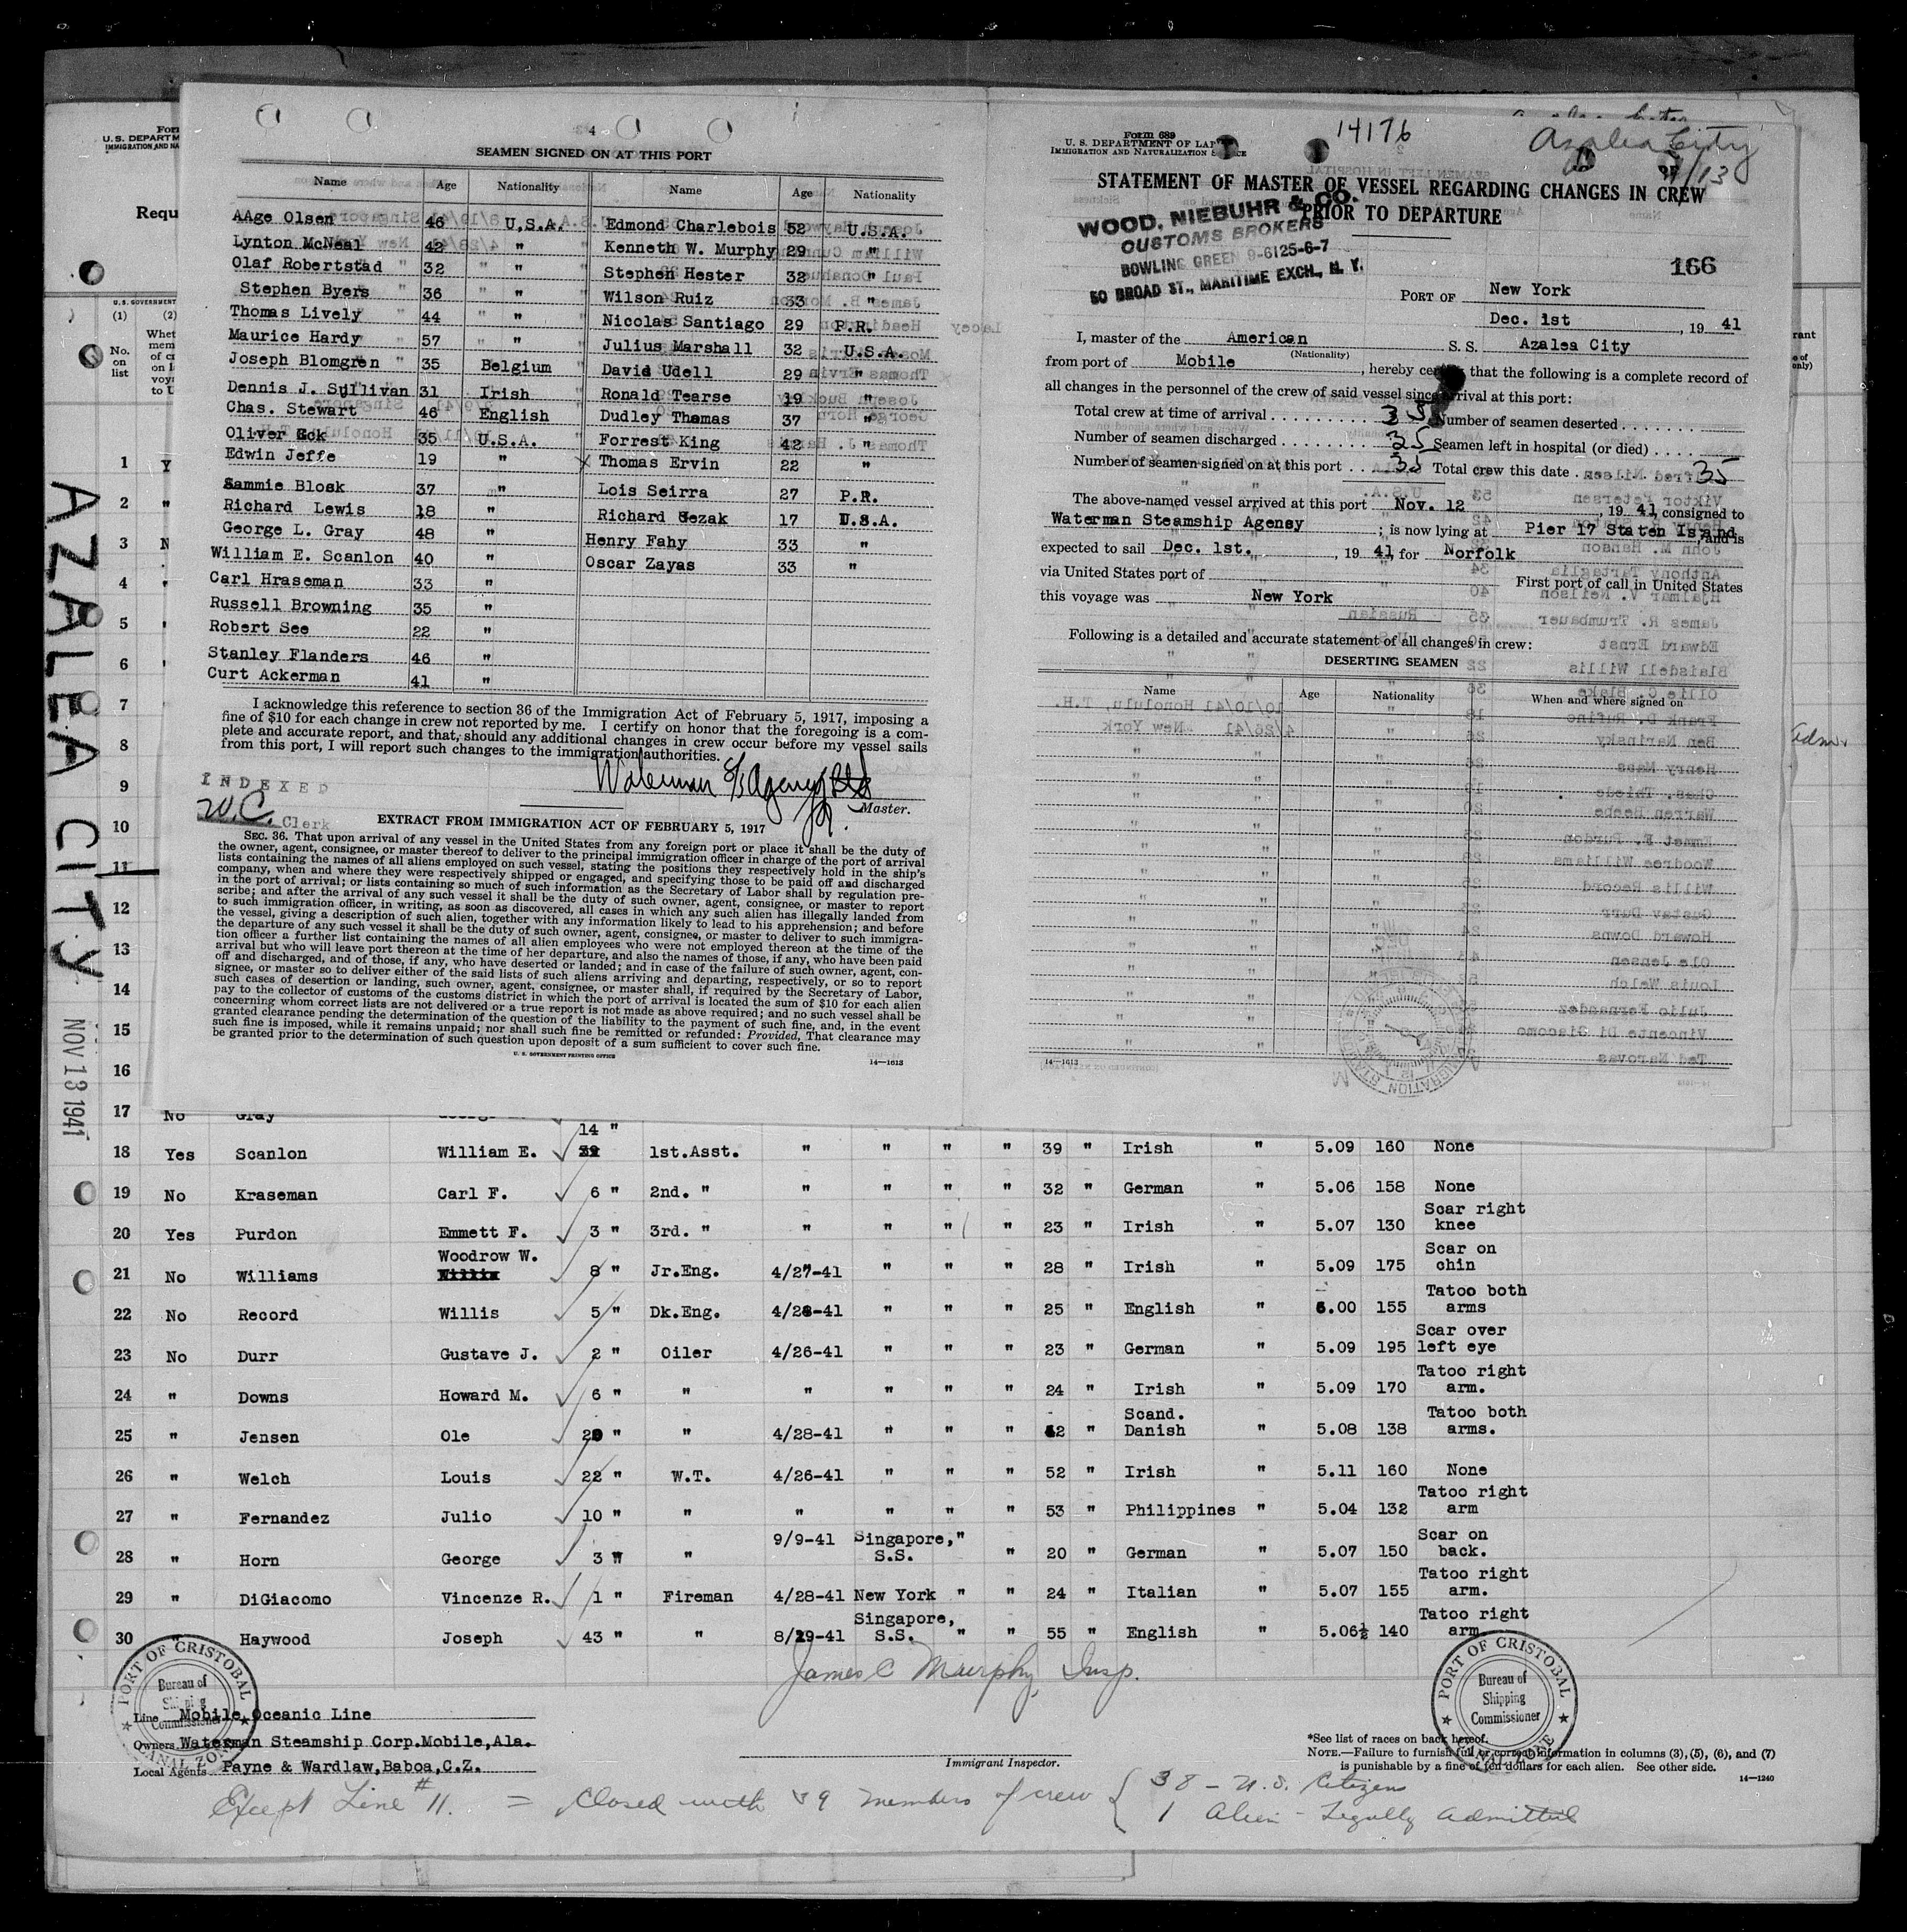 4
SEAMEN SIGNED ON AT THIS PORT
Name Age Nationality Name Age Nationality
AAge Olsen 46 U.S.A. Edmond Charlebois 52 U.S.A.
Lynton McNeal 42 " Kenneth W. Murphy 29 "
Olaf Robertstad 32 " Stephen Hester 32 "
Stephen Byers 36 " Wilson Ruiz 33 "
Thomas Lively 44 " Nicolas Santiago 29 P.R.
Maurice Hardy 57 " Julius Marshall 32 U.S.A.
Joseph Blomgren 35 Belgium David Udell 29 "
Dennis J. Sullivan 31 Irish Ronald Tearse 19 "
Chas. Stewart 46 English Dudley Thomas 37 "
Oliver Eck 35 U.S.A. Forrest King 42 "
Edwin Jeffe 19 " X Thomas Ervin 22 "
Sammie Blosk 37 " Lois Seirra 27 P.R.
Richard Lewis 18 " Richard Gezak 17 U.S.A.
George L. Gray 48 " Henry Fahy 33 "
William E. Scanlon 40 " Oscar Zayas 33 "
Carl Hraseman 33 "
Russell Browning 35 "
Robert See 22 "
Stanley Flanders 46 "
Curt Ackerman 41 "
I acknowledge this reference to section 36 of the Immigration Act of February 5, 1917, imposing a
fine of $10 for each change in crew not reported by me. I certify on honor that the foregoing is a com-
plete and accurate report, and that, should any additional changes in crew occur before my vessel sails
from this port, I will report such changes to the immigration authorities.
INDEXED
W.C. Clerk
Waterman S/S Agency Ltd
Master.
EXTRACT FROM IMMIGRATION ACT OF FEBRUARY 5, 1917
SEC. 36. That upon arrival of any vessel in the United States from any foreign port or place it shall be the duty of
the owner, agent, consignee, or master thereof to deliver to the principal immigration officer in charge of the port of arrival
lists containing the names of all aliens employed on such vessel, stating the positions they respectively hold in the ship's
company, when and where they were respectively shipped or engaged, and specifying those to be paid off and discharged
in the port of arrival; or lists containing so much of such information as the Secretary of Labor shall by regulation pre-
scribe; and after the arrival of any such vessel it shall be the duty of such owner, agent, consignee, or master to report
to such immigration officer, in writing, as soon as discovered, all cases in which any such alien has illegally landed from
the vessel, giving a description of such alien, together with any information likely to lead to his apprehension; and before
the departure of any such vessel it shall be the duty of such owner, agent, consignee, or master to deliver to such immigra-
tion officer a further list containing the names of all alien employees who were not employed thereon at the time of the
arrival but who will leave port thereon at the time of her departure, and also the names of those, if any, who have been paid
off and discharged, and of those, if any, who have deserted or landed; and in case of the failure of such owner, agent, con-
signee, or master so to deliver either of the said lists of such aliens arriving and departing, respectively, or so to report
such cases of desertion or landing, such owner, agent, consignee, or master shall, if required by the Secretary of Labor,
pay to the collector of customs of the customs district in which the port of arrival is located the sum of $10 for each alien
concerning whom correct lists are not delivered or a true report is not made as above required; and no such vessel shall be
granted clearance pending the determination of the question of the liability to the payment of such fine, and, in the event
such fine is imposed, while it remains unpaid; nor shall such fine be remitted or refunded: Provided, That clearance may
be granted prior to the determination of such question upon deposit of a sum sufficient to cover such fine.
U. S. GOVERNMENT PRINTING OFFICE 14—1613
Form 689
U. S. DEPARTMENT OF LAB
IMMIGRATION AND NATURALIZATION SERVICE
14176
Azalea City
11/13
STATEMENT OF MASTER OF VESSEL REGARDING CHANGES IN CREW
PRIOR TO DEPARTURE
WOOD, NIEBUHR & CO.
CUSTOMS BROKERS
BOWLING GREEN 9-6125-6-7
50 BROAD ST., MARITIME EXCH., N. Y.
166
PORT OF New York
Dec. 1st, 1941
I, master of the American S. S. Azalea City
(Nationality)
from port of Mobile, hereby certify that the following is a complete record of
all changes in the personnel of the crew of said vessel since arrival at this port:
Total crew at time of arrival 35 Number of seamen deserted
Number of seamen discharged 35 Seamen left in hospital (or died)
Number of seamen signed on at this port 35 Total crew this date 35
The above-named vessel arrived at this port Nov. 12, 1941, consigned to
Waterman Steamship Agensy; is now lying at Pier 17 Staten Island, and is
expected to sail Dec. 1st., 1941 for Norfolk
via United States port of First port of call in United States
this voyage was New York
Following is a detailed and accurate statement of all changes in crew:
DESERTING SEAMEN
Name Age Nationality When and where signed on
14—1613
Form
U. S. DEPARTM
IMMIGRATION AND NA
Requ
U. S. GOVERNMENT
(1) (2)
No. on list
Whet
mem
of c
on l
voy
to U
1 Y
2 "
3 N
4 "
5 "
6 "
7
8
9
10
11
12
13
14
15
16
AZALEA CITY
NOV 13 1941
17 No Gray
18 Yes Scanlon William E. 14 " 1st.Asst. " " " " 39 " Irish " 5.09 160 None
19 No Kraseman Carl F. 6 " 2nd. " " " " " 32 " German " 5.06 158 None
20 Yes Purdon Emmett F. 3 " 3rd. " " " " " 23 " Irish " 5.07 130 Scar right knee
21 No Williams Woodrow W. 8 " Jr.Eng. 4/27-41 " " " 28 " Irish " 5.09 175 Scar on chin
22 No Record Willis 5 " Dk.Eng. 4/28-41 " " " 25 " English " 6.00 155 Tatoo both arms
23 No Durr Gustave J. 2 " Oiler 4/26-41 " " " 23 " German " 5.09 195 Scar over left eye
24 " Downs Howard M. 6 " " " " " " 24 " Irish " 5.09 170 Tatoo right arm.
25 " Jensen Ole 20 " " 4/28-41 " " " 42 " Scand. Danish " 5.08 138 Tatoo both arms.
26 " Welch Louis 22 " W.T. 4/26-41 " " " 52 " Irish " 5.11 160 None
27 " Fernandez Julio 10 " " " " " " 53 " Philippines " 5.04 132 Tatoo right arm
28 " Horn George 3 " " 9/9-41 Singapore, S.S. " " 20 " German " 5.07 150 Scar on back.
29 " DiGiacomo Vincenze R. 1 " Fireman 4/28-41 New York " " 24 " Italian " 5.07 155 Tatoo right arm.
30 " Haywood Joseph 43 " " 8/29-41 Singapore, S.S. " " 55 " English " 5.06½ 140 Tatoo right arm
James C Murphy, Insp.
PORT OF CRISTOBAL
Bureau of
Shipping
Commissioner
CANAL ZONE
Line Mobile Oceanic Line
Owners Waterman Steamship Corp.Mobile,Ala.
Local Agents Payne & Wardlaw,Baboa,C.Z.
Immigrant Inspector.
PORT OF CRISTOBAL
Bureau of
Shipping
Commissioner
CANAL ZONE
*See list of races on back hereof.
NOTE.—Failure to furnish full or correct information in columns (3), (5), (6), and (7)
is punishable by a fine of ten dollars for each alien. See other side.
14—1240
Except Line # 11. = Closed with 39 members of crew { 38 - U.S. Citizens
1 Alien - Legally admitted